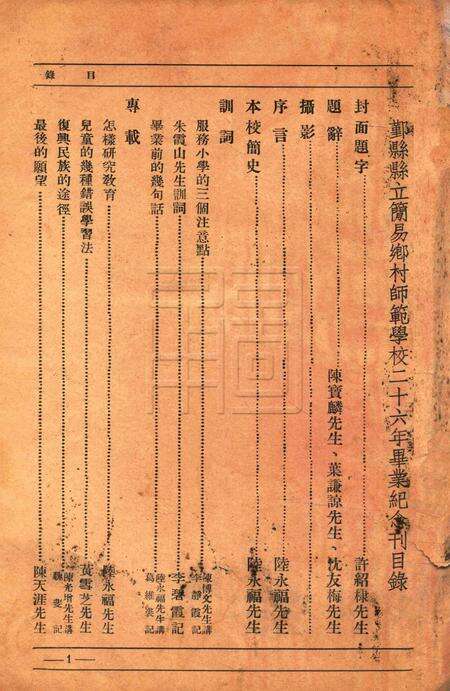 目錄
鄞縣縣立簡易鄉村師範學校二十六年畢業紀念刊目錄
封面題字 許紹棣先生
題辭 陳寶麟先生、葉謙諒先生、沈友梅先生
攝影
序言 陸永福先生
本校簡史 陸永福先生
訓詞
服務小學的三個注意點 陳博文先生講 李靜霞記
朱霞山先生訓詞 李碧霞記
畢業前的幾句話 陸永福先生講 葛維棠記
專載
怎樣研究教育 陸永福先生
兒童的幾種錯誤學習法 黃雪芗先生
復興民族的途徑 先生講 記
最後的願望 陳天涯先生
—1—